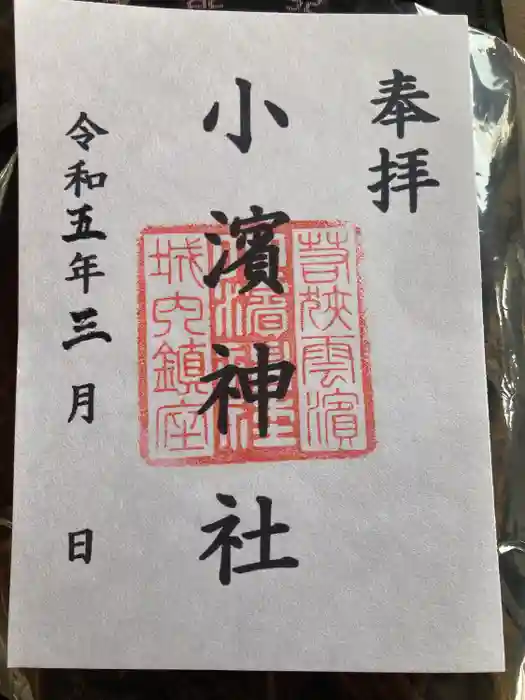 奉拝
小濱神社
若狭雲濱
小濱神社
城内鎮座
令和五年三月 日